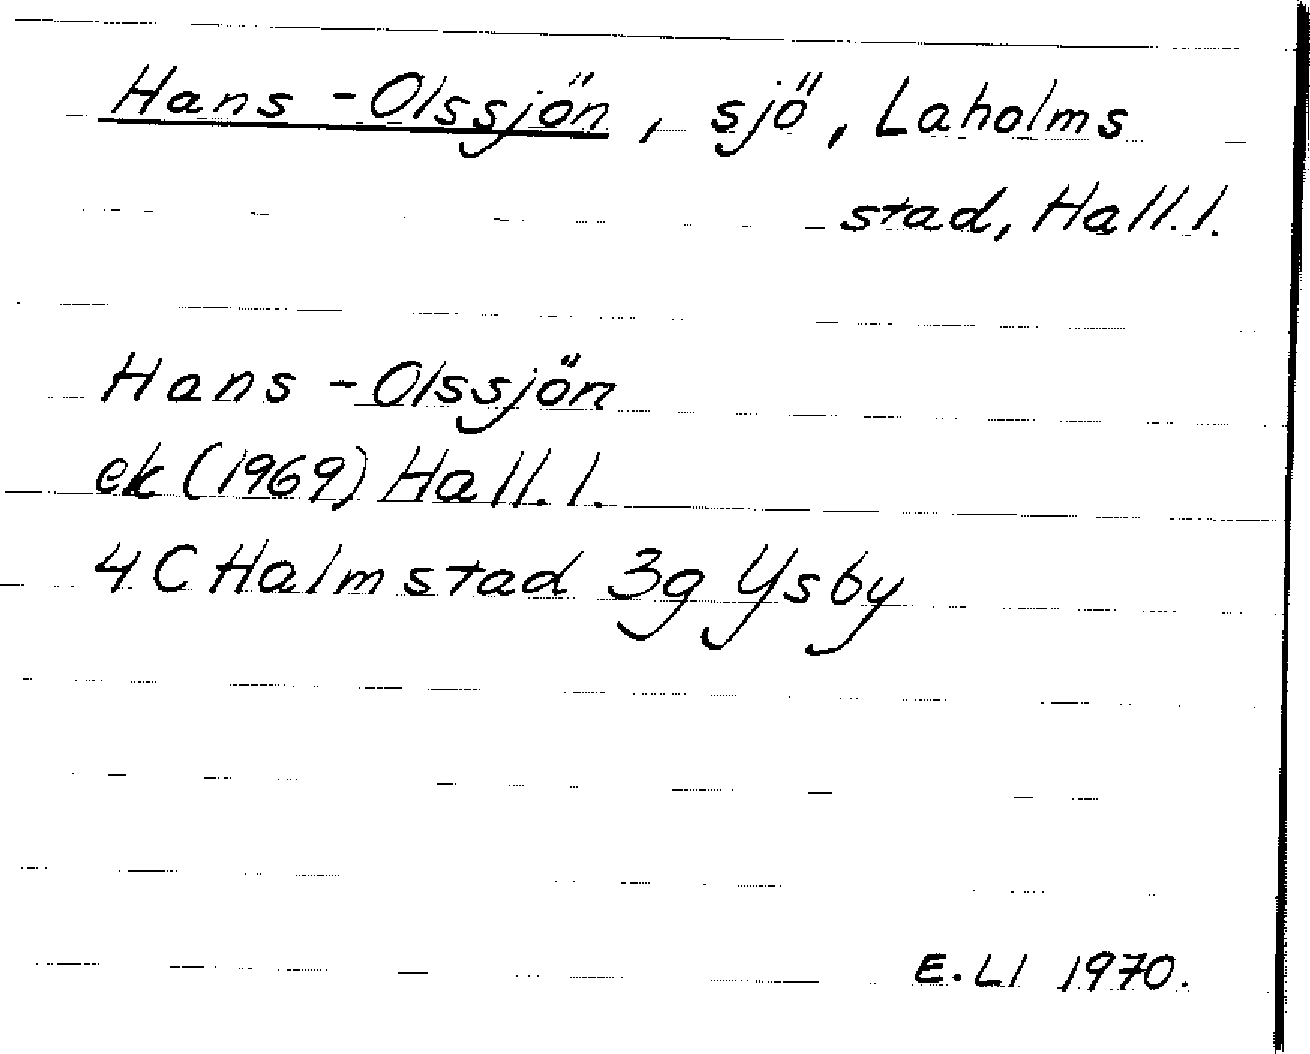 Hans-Olssjön, sjö, Laholms
stad, Hall.l.
Hans-Olssjön
ek (1969) Hall.l.
4C Halmstad 3g Ysby
E.Ll 1970.